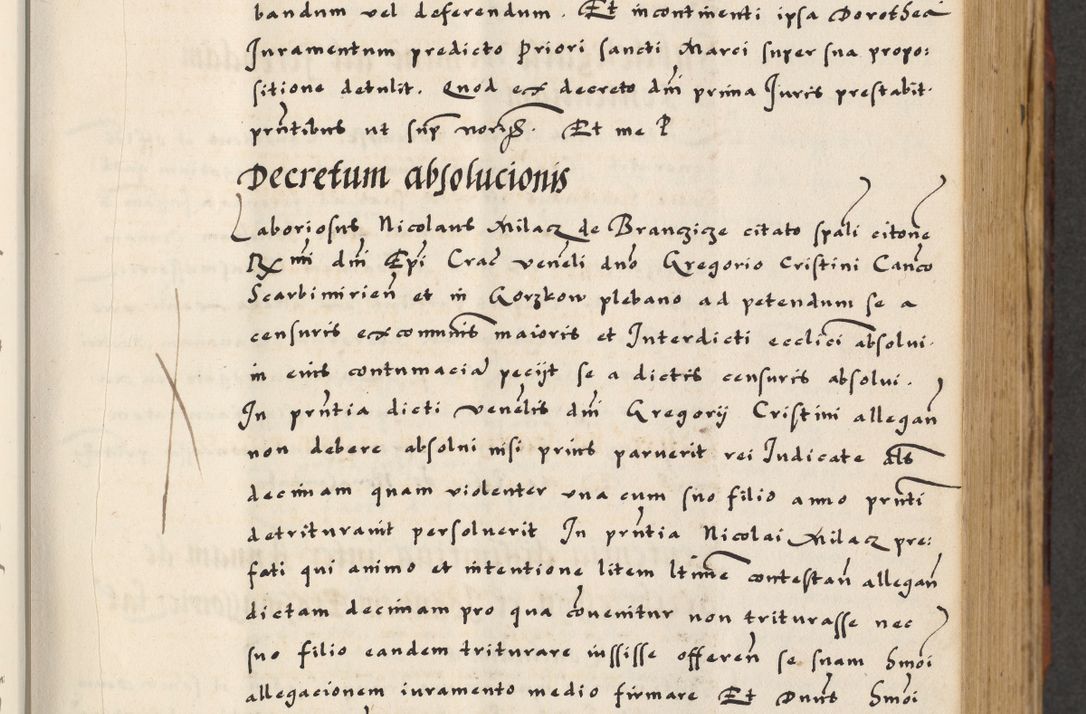 bandum vel deferendum. Et incontinenti ipsa Dorothea
Juramentum predicto priori sancti Marci super sua propo:
sitione detulit. Quod ex decreto dni prima Juris prestabit.
prntibus ut sup Et me
Decretum absolucionis
Laboriosus Nicolaus Milacz de Branczicze citato spali citone
Rmi dni Epi Crac veneli dno Gregorio Cristini Canco
Scarbimirien et in Gorzkow plebano ad petendum se a
censuris excommunis maioris et Interdicti ecclici absolui.
in eius contumacia peciit se a dictis censuris absolui.
In prntia dicti venelis dni Gregorij Cristini allegan
non debere absolui nisi prius paruerit rei Judicate als
decimam quam violenter una cum suo filio anno prnti
detriturauit persoluerit In prntia Nicolai Milacz pre:
fati qui animo et intentione litem ltime contestan allegan
dictam decimam pro qua conuenitur non triturasse nec
suo filio eandem triturare iussisse offeren se suam hmoi
allegacionem iuramento medio firmare Et Dnus hmoi